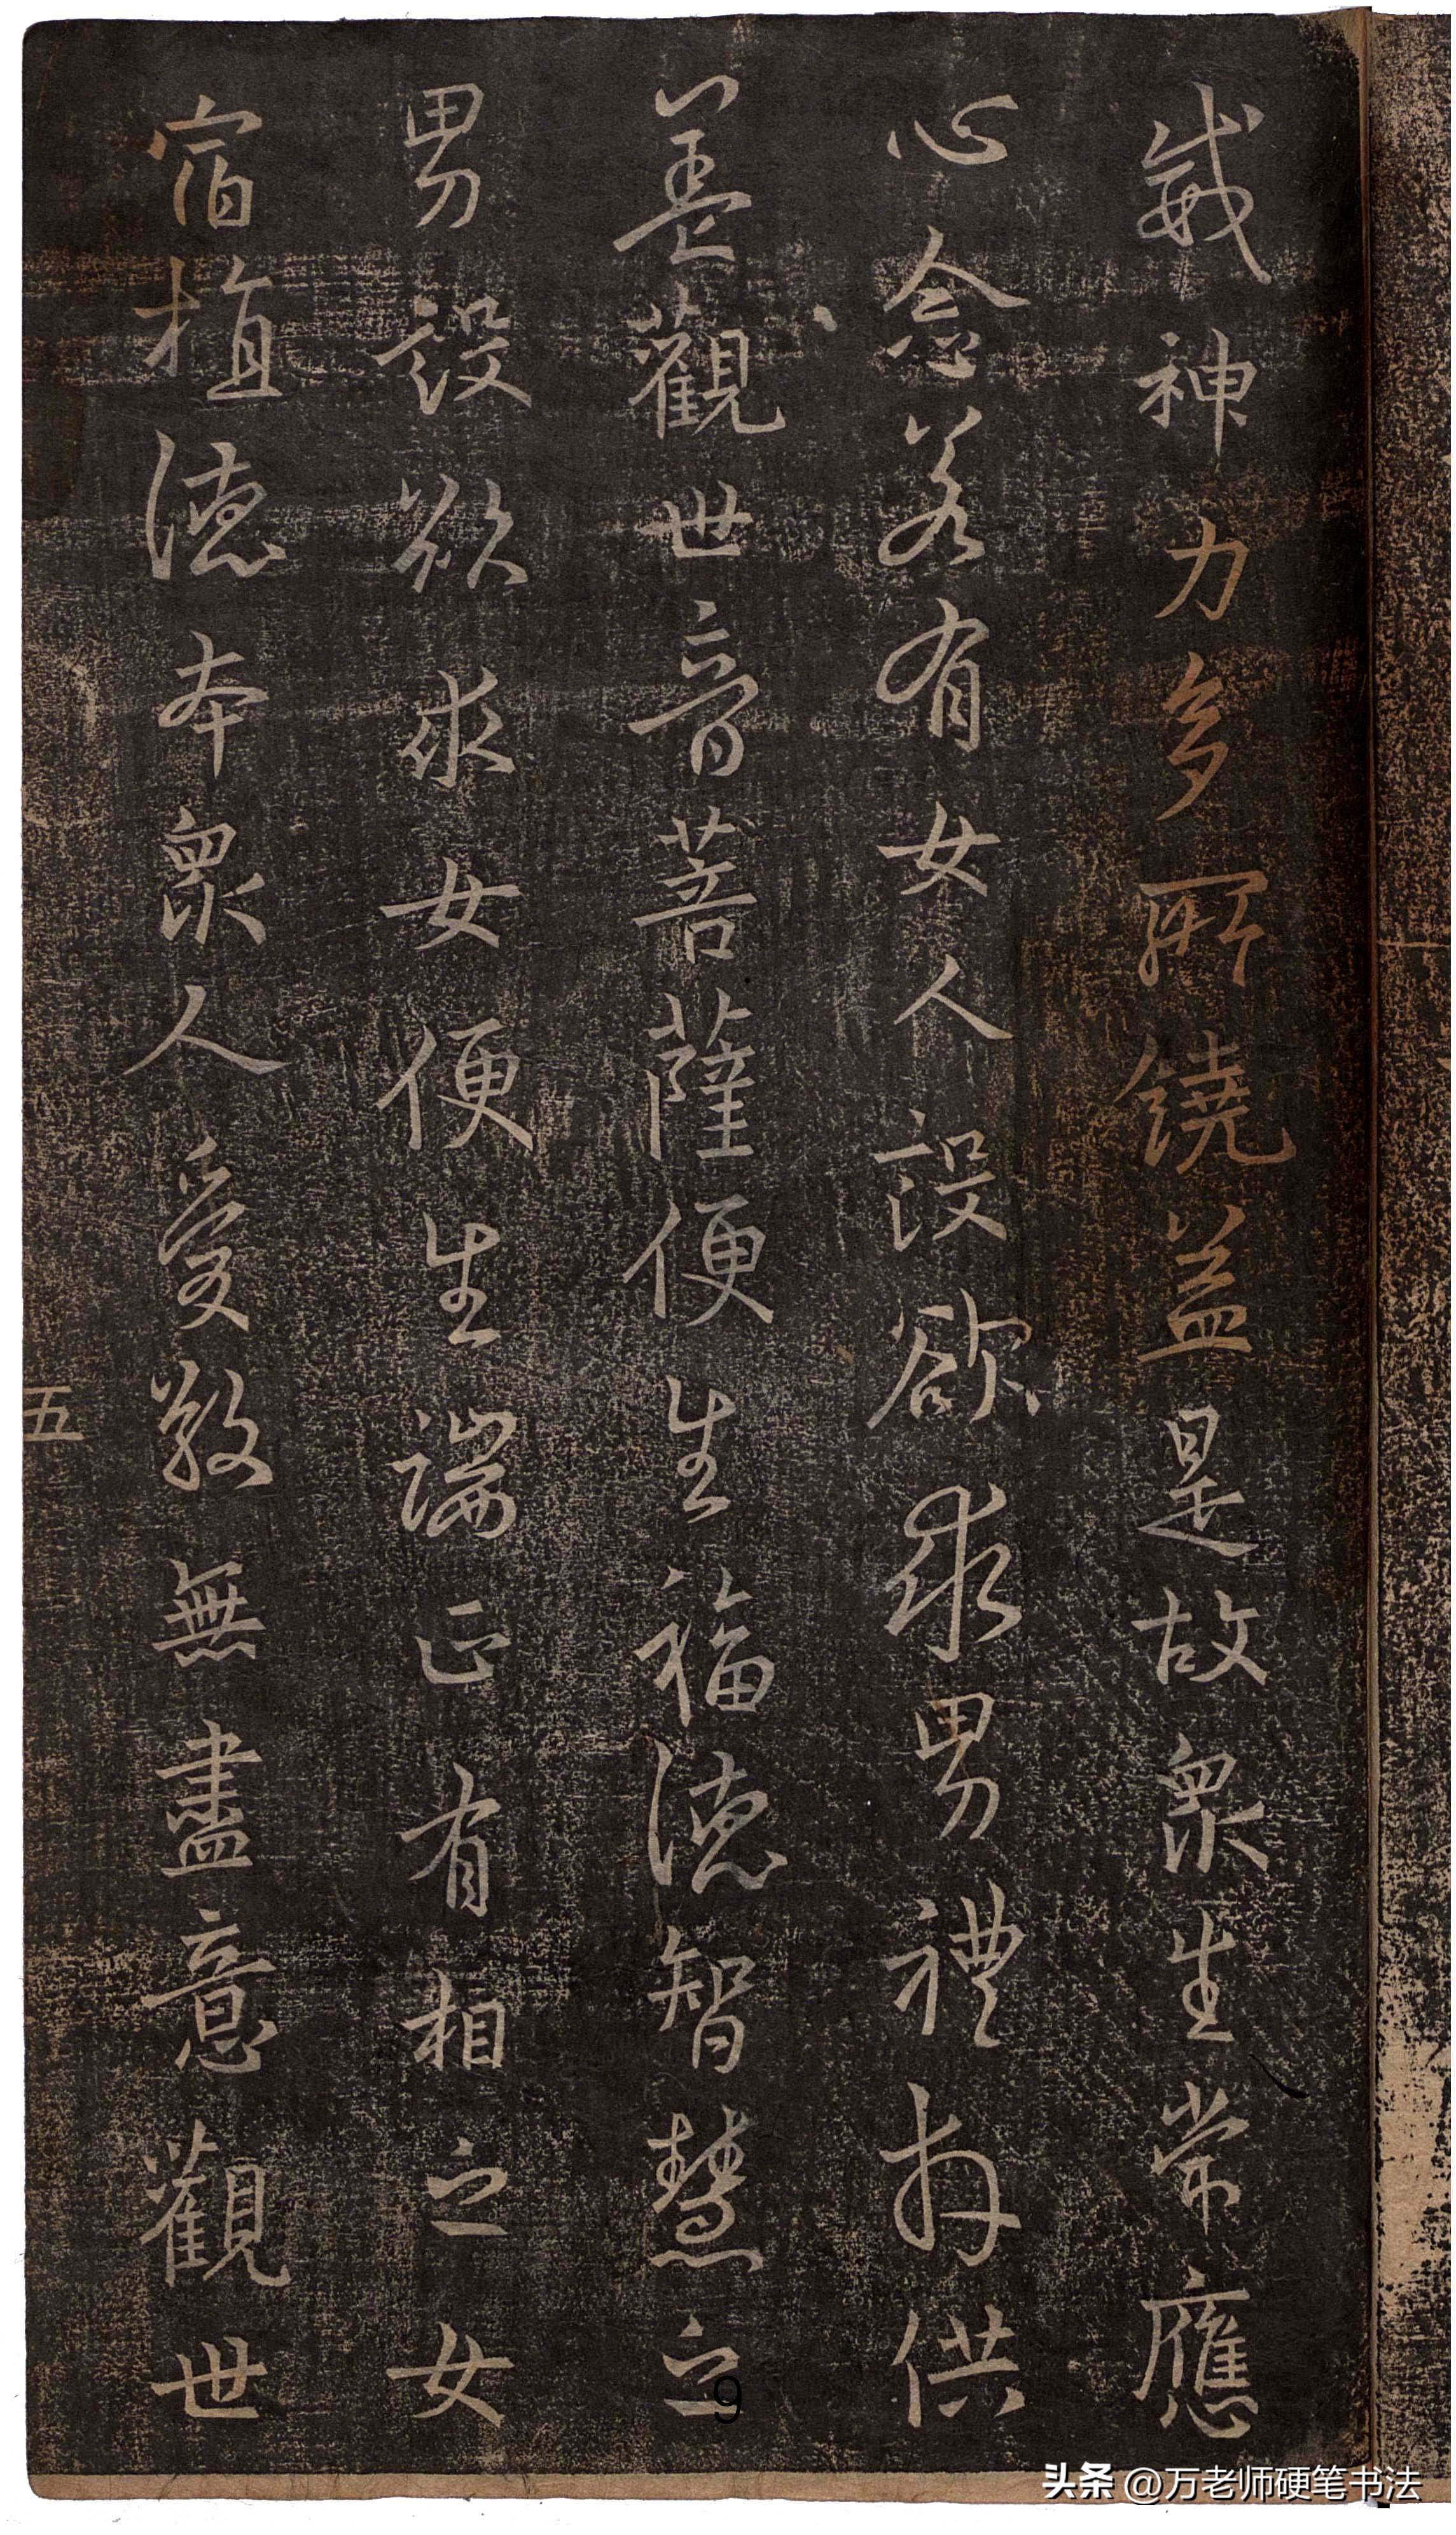 威神力多所饒益是故衆生常應
心念若有女人設欲求男禮拜供
養觀世音菩薩便生福德智慧之
男設欲求女便生端正有相之女
宿植德本衆人愛敬無盡意觀世
五
9
头条 @万老师硬笔书法